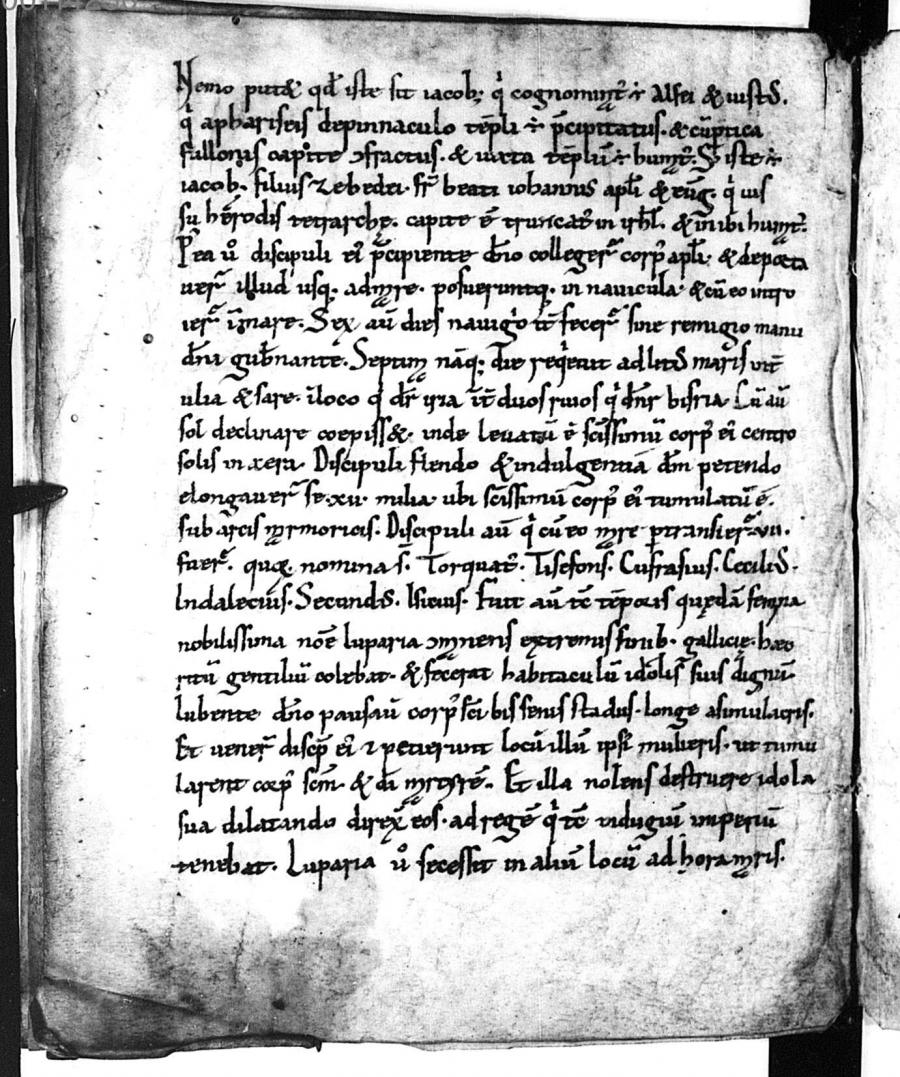 Nemo put& qd̄ iste sit iacob; q̇ cognominat᷒ ÷ Alfei & iustꝰ.
q̇ apharisēis depinnaculo tēpli ÷ p̄cipitatus. & cū ptica
fullonis capite ɔfractus. & iuxta tēplū ÷ humat᷒. S; iste ÷
iacob. filius zebedei. fr̄ beati iohannis apl̄i & eūg. q̇ ius
su herodis tetrarchę. capite ē truncat᷒ in irhl̄. & in ibi humat᷒.
Pea ů discipuli ei᷒ p̄cipiente dn̄o colleger̄ corp᷒ apl̄i. & deporta
uer̄ illud usq; ad mare. posueruntq; in nauicula. & cū eo intro
ier̄ ī mare. Sex aū dies nauigio tē fecer̄ sine remigio manu
dn̄i gub̄nante. Septima nāq; die
ulia & sare. iloco q dr̄ iria īt duos riuos q̇ dn̄r bisria. Cū aū
sol declinare coepiss&. inde leuatū ē sc̄issimū corp᷒ ei᷒ centro
solis in aera. Discipuli flendo & indulgentiā dm̄ petendo
elongauer̄ se. xii. milia. ubi sc̄issimū corp᷒ ei᷒ tumulatū ē.
sub arcis marmoricis. Discipuli aū q̇ cū eo mare ptransier̄ .vii.
fuer̄. quoꝝ nomina s̄. Torquat᷒. Tisefons. Eufrasius. Ceciliꝰ.
Indalecius. Secundꝰ. Isicius. Fuit aū tē tēporis quędā femina
nobilissima noē luparia ɔmanens extremis finib. gallicie. hec
ritū gentiliū colebat. & fecerat habitaculū idolis suis dignū.
Iubente dn̄o pausau corp᷒ sc̄i bis senis stadiis. longe asimulacris.
Et uener̄ discp̄ ei᷒ ⁊ petierunt locū illū ipsi᷒ mulieris. ut tumu
larent corp᷒ scm̄. & dī martyrē. Et illa nolens destruere idola
sua dilatando direx̄ eos. ad regē q̇ tē uidugiū imperiū
tenebat. Luparia ů secessit in aliū locū ad hora maris.